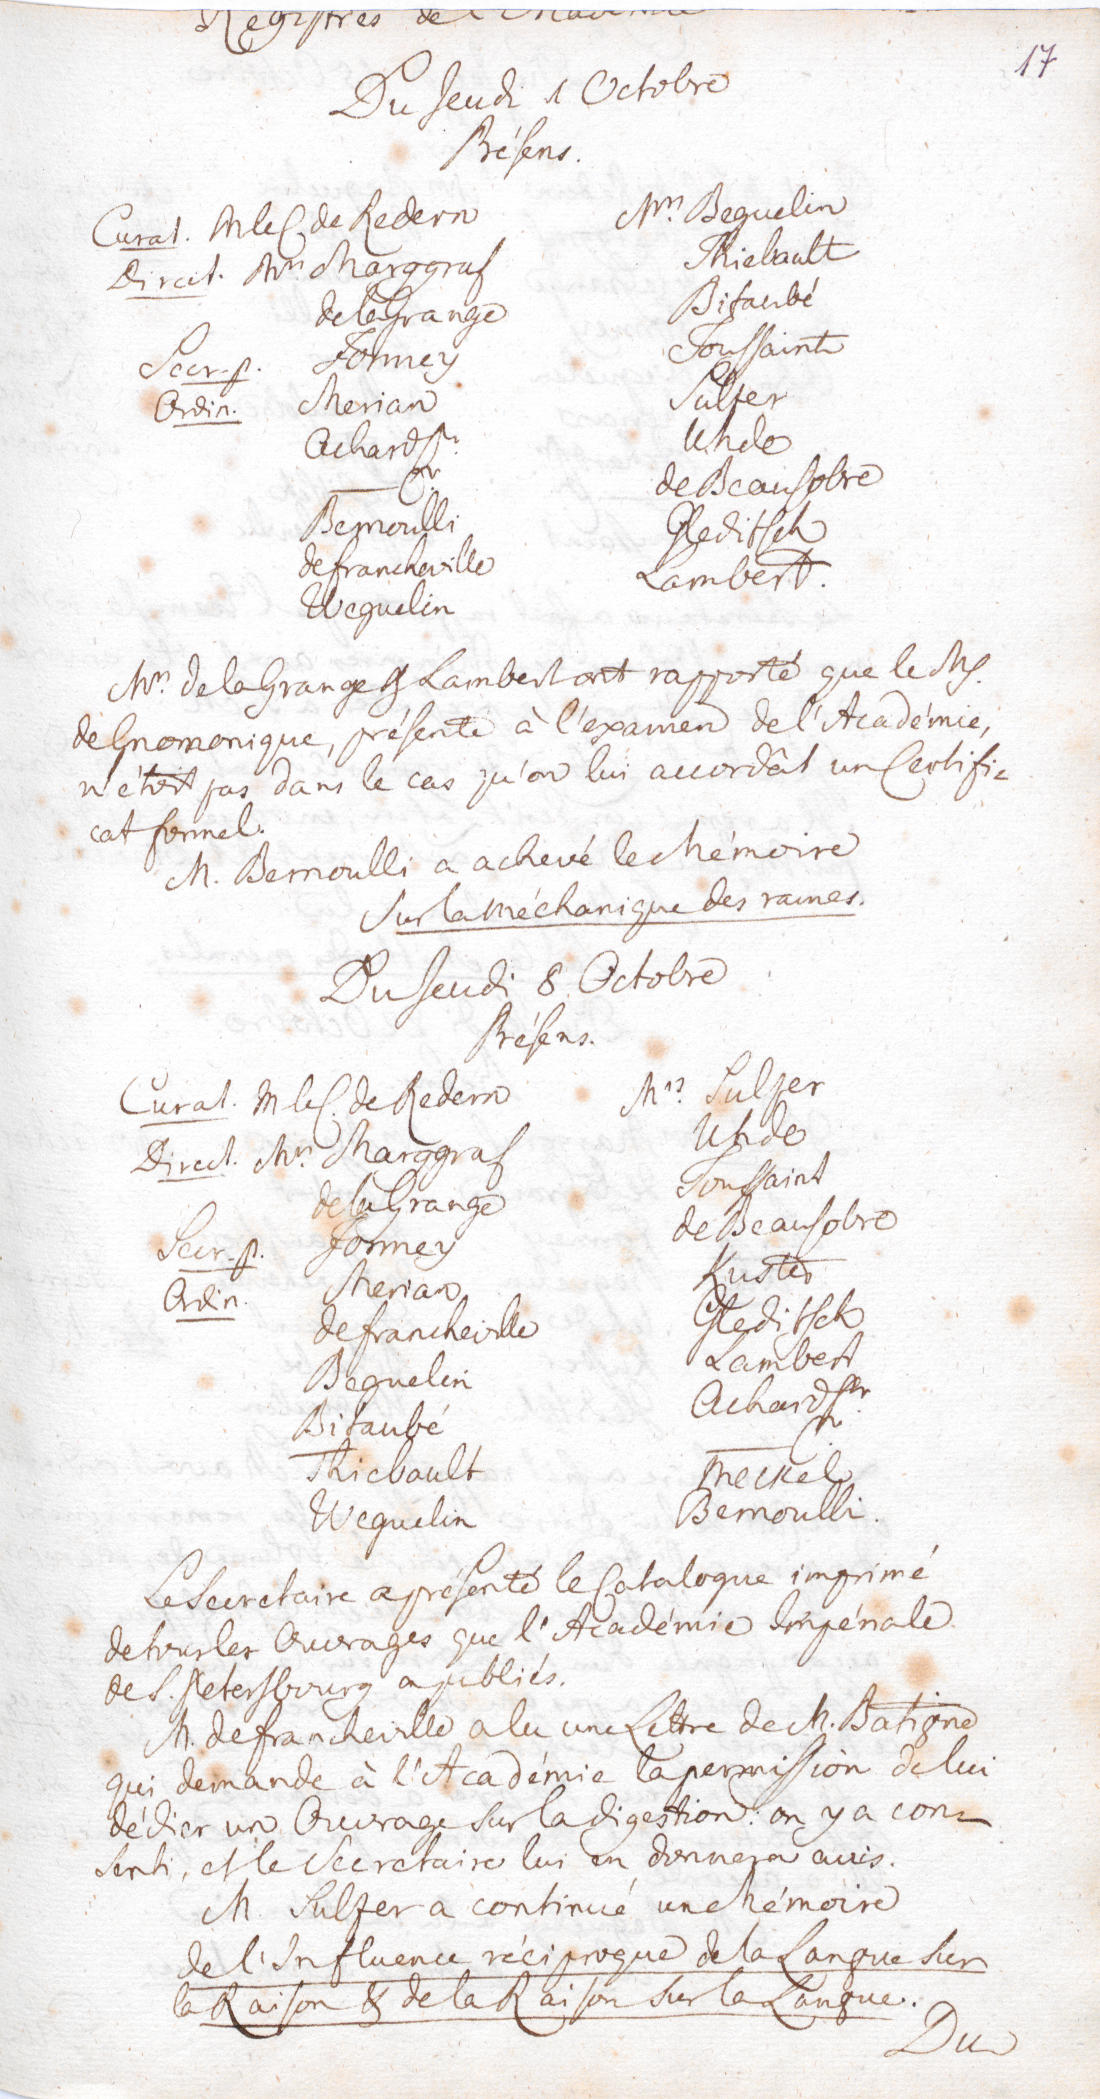 Registres de l'Académie
17
Du Jeudi 1 Octobre
Présens.
Curat. M le C. de Redern
Direct. Mrs Marggraf
de la Grange
Secr. p. Formey
Ordin. Merian
Achard Sr
—— Jr
Bernoulli
de Francheville
Weguelin
Mrs Beguelin
Thiebault
Bitaubé
Toussaint
Sulzer
Uhde
de Beausobre
Gleditsch
Lambert.
Mrs de la Grange & Lambert ont rapporté que le Ms.
de Gnomonique, présenté à l'examen de l'Académie,
n'étoit pas dans le cas qu'on lui accordât un Certifi-
cat formel.
M. Bernoulli a achevé le Mémoire
Sur la Méchanique des rames.
Du Jeudi 8 Octobre
Présens.
Curat. M le C. de Redern
Direct. Mrs Marggraf
de la Grange
Secr. p. Formey
Ordin. Merian
de Francheville
Beguelin
Bitaubé
Thiebault
Weguelin
Mrs Sulzer
Uhde
Toussaint
de Beausobre
Kuster
Gleditsch
Lambert
Achard Sr
—— Jr
Meckel
Bernoulli.
Le Secretaire a présenté le Catalogue imprimé
de tous les Ouvrages que l'Académie Impériale
de S. Petersbourg a publiés.
M. de Francheville a lu une Lettre de M. Batigne
qui demande à l'Académie la permission de lui
dédier un Ouvrage sur la digestion: on y a con-
senti, et le Secretaire lui en donnera avis.
M. Sulzer a continué un Mémoire
de l'Influence réciproque de la Langue sur
la Raison & de la Raison sur la Langue.
Du